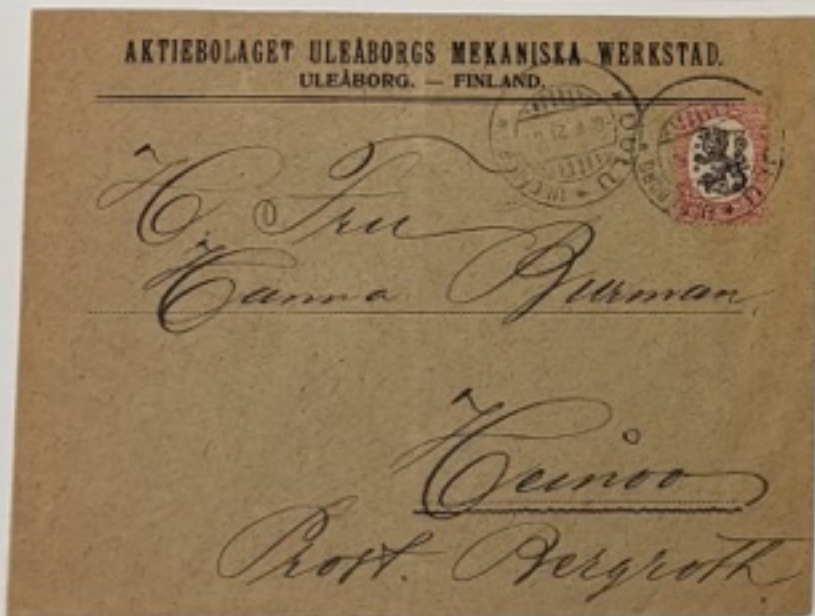 AKTIEBOLAGET ULEÅBORGS MEKANISKA WERKSTAD.
ULEÅBORG. — FINLAND.
OULU
H Fru
Hanna Burman
Heinoo
Prost. Bergroth.